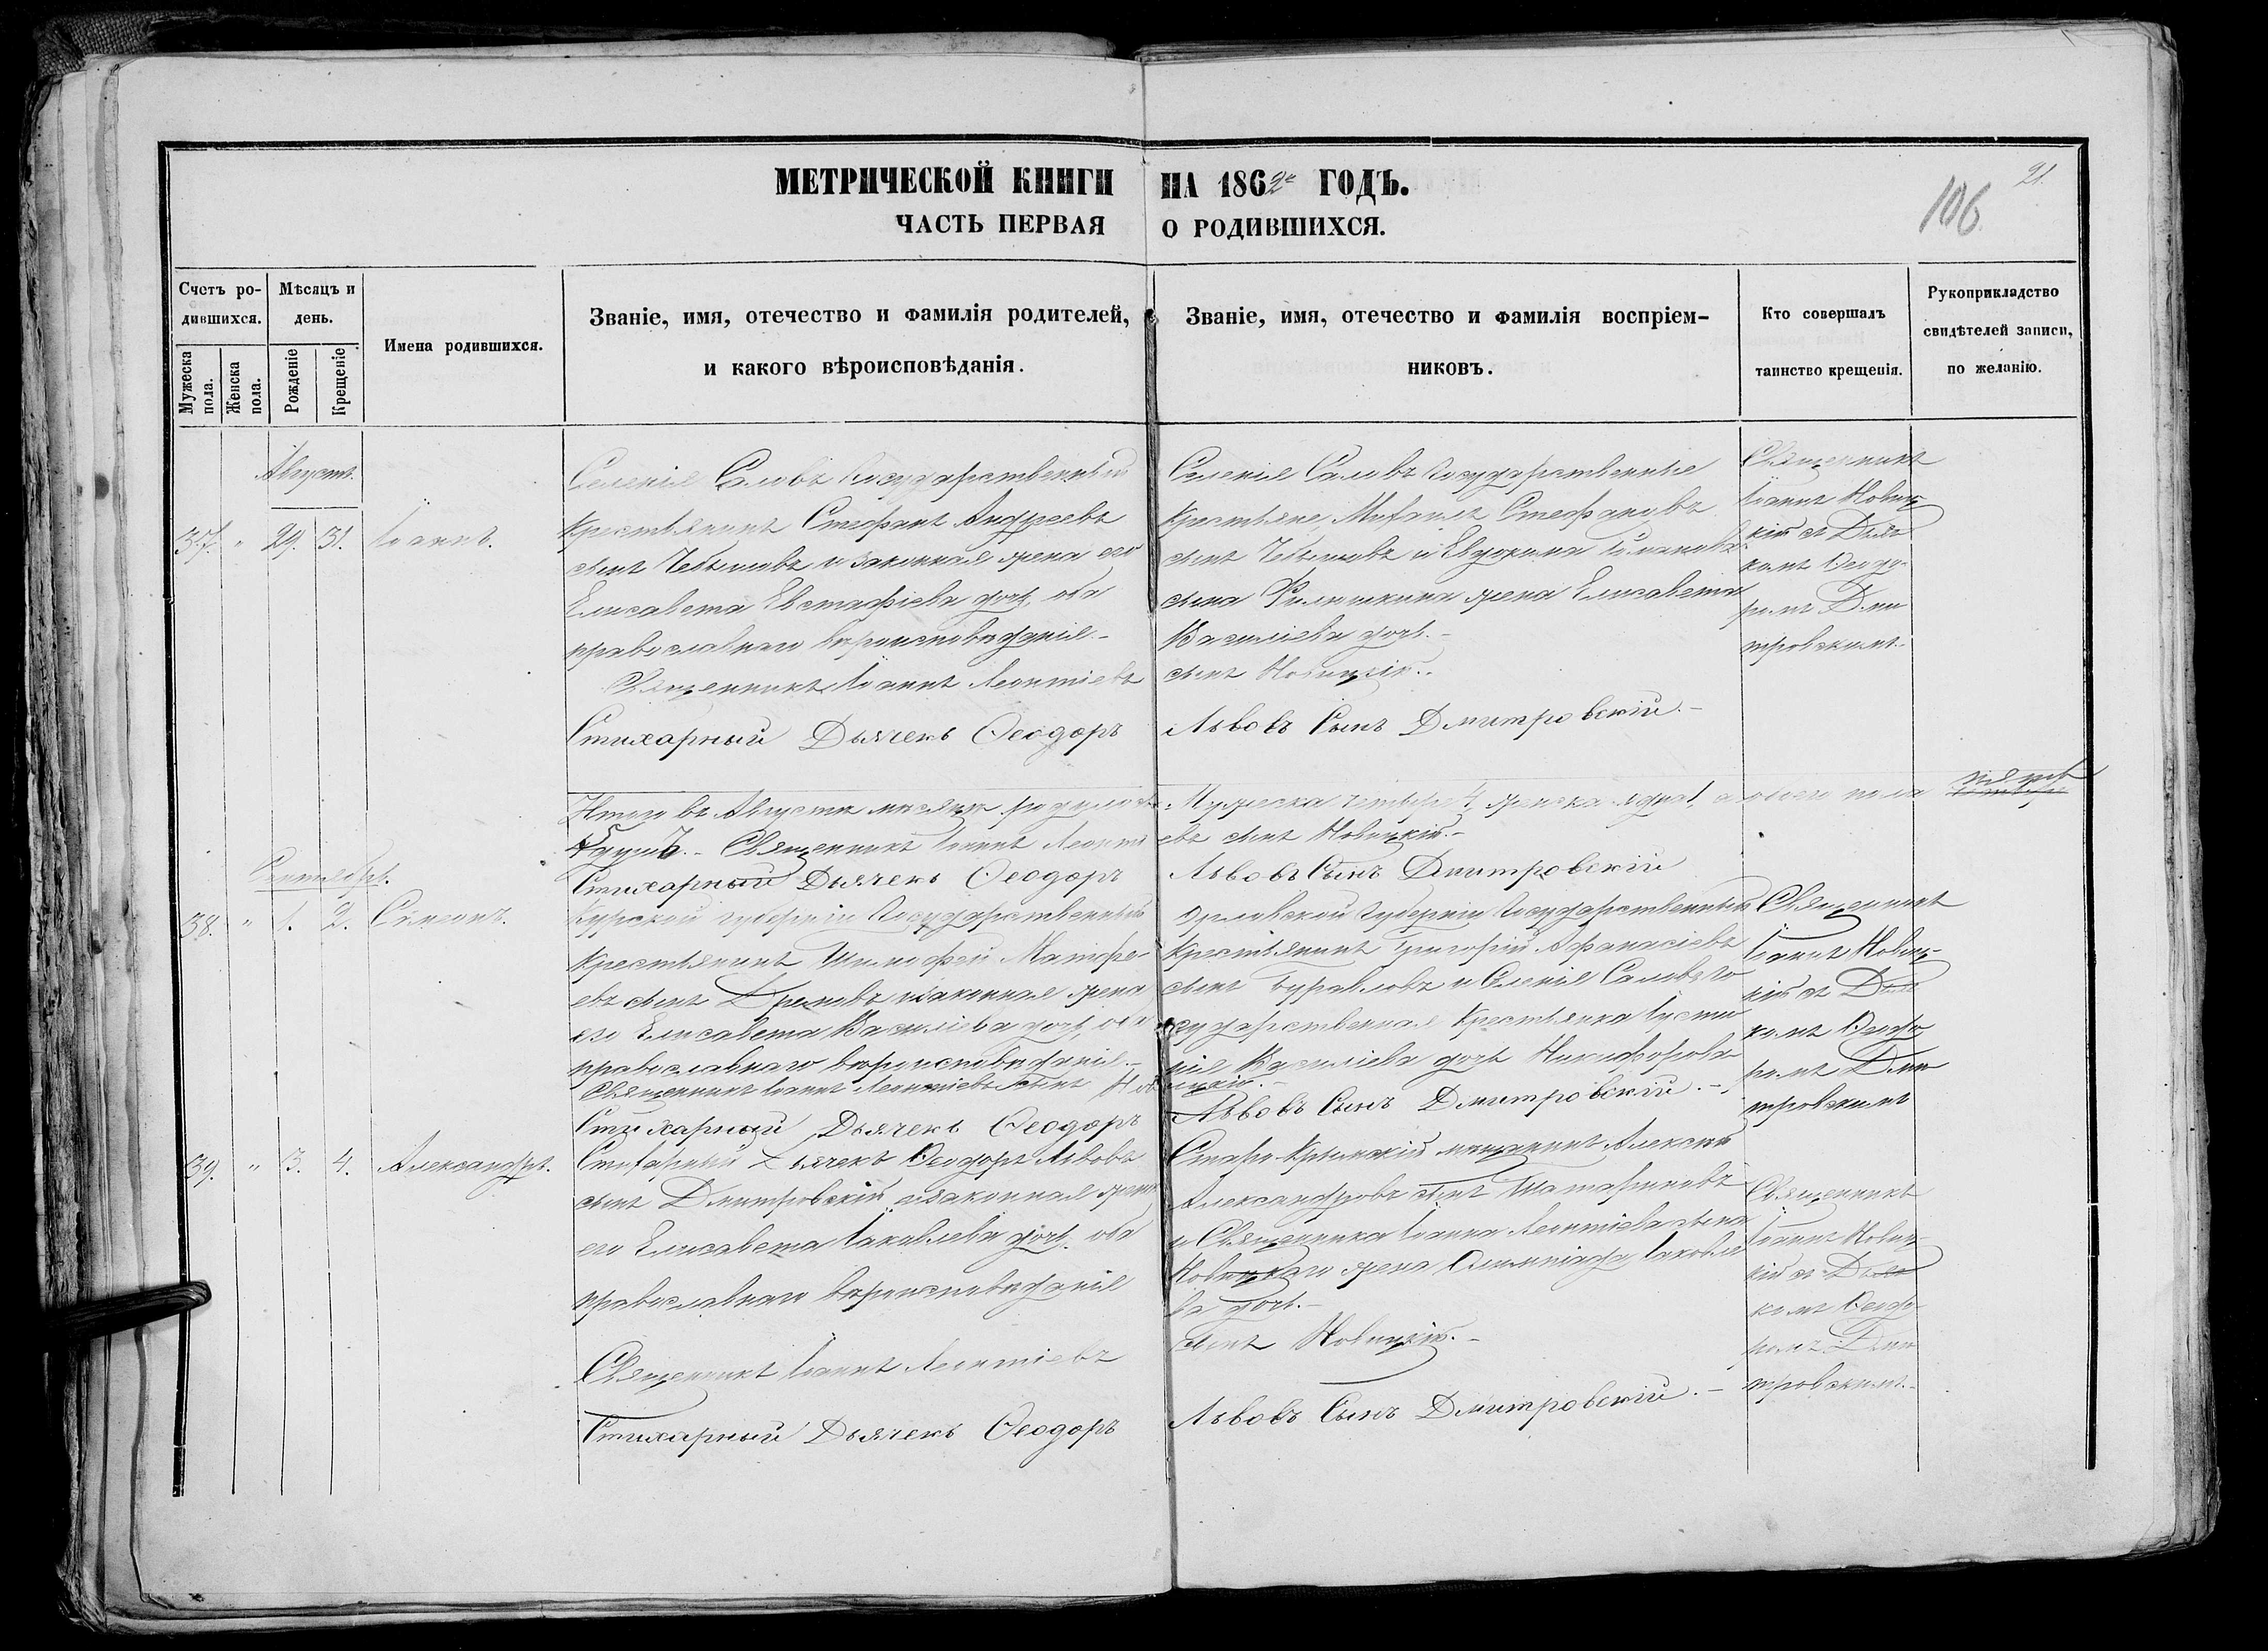 МЕТРИЧЕСКОЙ КНИГИ НА 1862й ГОДЪ.
ЧАСТЬ ПЕРВАЯ О РОДИВШИХСЯ.
21.
106.
Счетъ ро-
дившихся.
Мужеска пола.
Женска пола.
Мѣсяцъ и
день.
Рожденіе
Крещеніе
Имена родившихся.
Званіе, имя, отечество и фамилія родителей,
и какого вѣроисповѣданія.
Званіе, имя, отечество и фамилія воспріем-
никовъ.
Кто совершалъ
таинство крещенія.
Рукоприкладство
свидѣтелей записи,
по желанію.
Августъ.
37. " 29. 31. Іоаннъ.
Селенія Саловъ Государственный
Крестьянинъ Стефанъ Андреевъ
сынъ Чебышовъ и законная жена его
Елисавета Евстафіева дочь, оба
православнаго вѣроисповѣданія.-
Священникъ Іоаннъ Леонтіевъ
Стихарный Дьячекъ Ѳеодоръ
Селенія Саловъ Государственные
Крестьяне, Михаилъ Стефановъ
сынъ Чебышовъ и Евдокима
сына жена Елисавета
Василіева дочь.-
сынъ Новицкій.-
Львовъ Сынъ Дмитровскій.-
Священникъ
Іоаннъ Новиц
кій съ Дьяч
комъ Ѳеодо-
ромъ Дми
тровскимъ.
Итого въ Августѣ мѣсяцѣ родилось
Мужеска четыре 4, женска одна 1, а обоего пола
5 душъ.- Священникъ Іоаннъ Леонті
евъ сынъ Новицкій.-
Стихарный Дьячекъ Ѳеодоръ
Львовъ Сынъ Дмитровскій
Сентябрь.
38. " 1. 2. Симеонъ.
Курской губерніи Государственный
Крестьянинъ Тимофей Матфе-
евъ сынъ и законная жена
его Елисавета Василіева дочь, оба
православнаго вѣроисповѣданія.-
Священникъ Іоаннъ Леонтіевъ сынъ Нов
Стихарный Дьячекъ Ѳеодоръ
Орловской Губерніи Государственный
Крестьянинъ Григорій Афанасіевъ
сынъ Журавловъ и Селенія Саловъ Го
сударственная Крестьянка Іусти
нія Василіева дочь Никифорова
ицкій.-
Львовъ Сынъ Дмитровскій.-
Священникъ
Іоаннъ Новиц-
кій съ Дьяч
комъ Ѳеодо
ромъ Дми
тровскимъ
39. " 3. 4. Александръ.
Стихарный Дьячекъ Ѳеодоръ Львовъ
сынъ Дмитровскій и законная жена
его Елисавета Іаковлева дочь, оба
православнаго вѣроисповѣданія
Священникъ Іоаннъ Леонтіевъ
Стихарный Дьячекъ Ѳеодоръ
Старо-Крымскій мещанинъ Алексій
Александровъ сынъ Шатариновъ
и Священника Іоанна Леонтіева сына
Новицкаго жена Олимпіада Іаковле
ва дочь.-
сынъ Новицкій.-
Львовъ Сынъ Дмитровскій.-
Священникъ
Іоаннъ Новиц-
кій съ Дьяч
комъ Ѳеодо-
ромъ Дми
тровскимъ.-